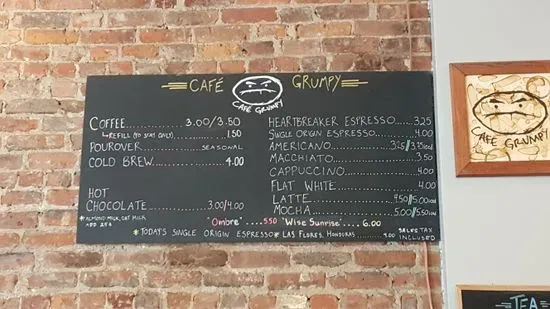 CAFÉ GRUMPY
CAFE GRUMPY
COFFEE......3.00/3.50
REFILL (TO STAY ONLY)......1.50
POUROVER......SEASONAL
COLD BREW......4.00
HOT
CHOCOLATE......3.00/4.00
*ALMOND MILK, OAT MILK
ADD
HEARTBREAKER ESPRESSO....3.25
SINGLE ORIGIN ESPRESSO......4.00
AMERICANO......3.25/3.75
MACCHIATO......3.50
CAPPUCCINO......4.00
FLAT WHITE......4.00
LATTE......4.50/5.00
MOCHA......5.00/5.50
"Ombre"....5.50 "Wise Sunrise"....6.00
*TODAY'S SINGLE ORIGIN ESPRESSO* LAS FLORES, HONDURAS
SALES TAX
INCLUDED
CAFE GRUMPY
TEA